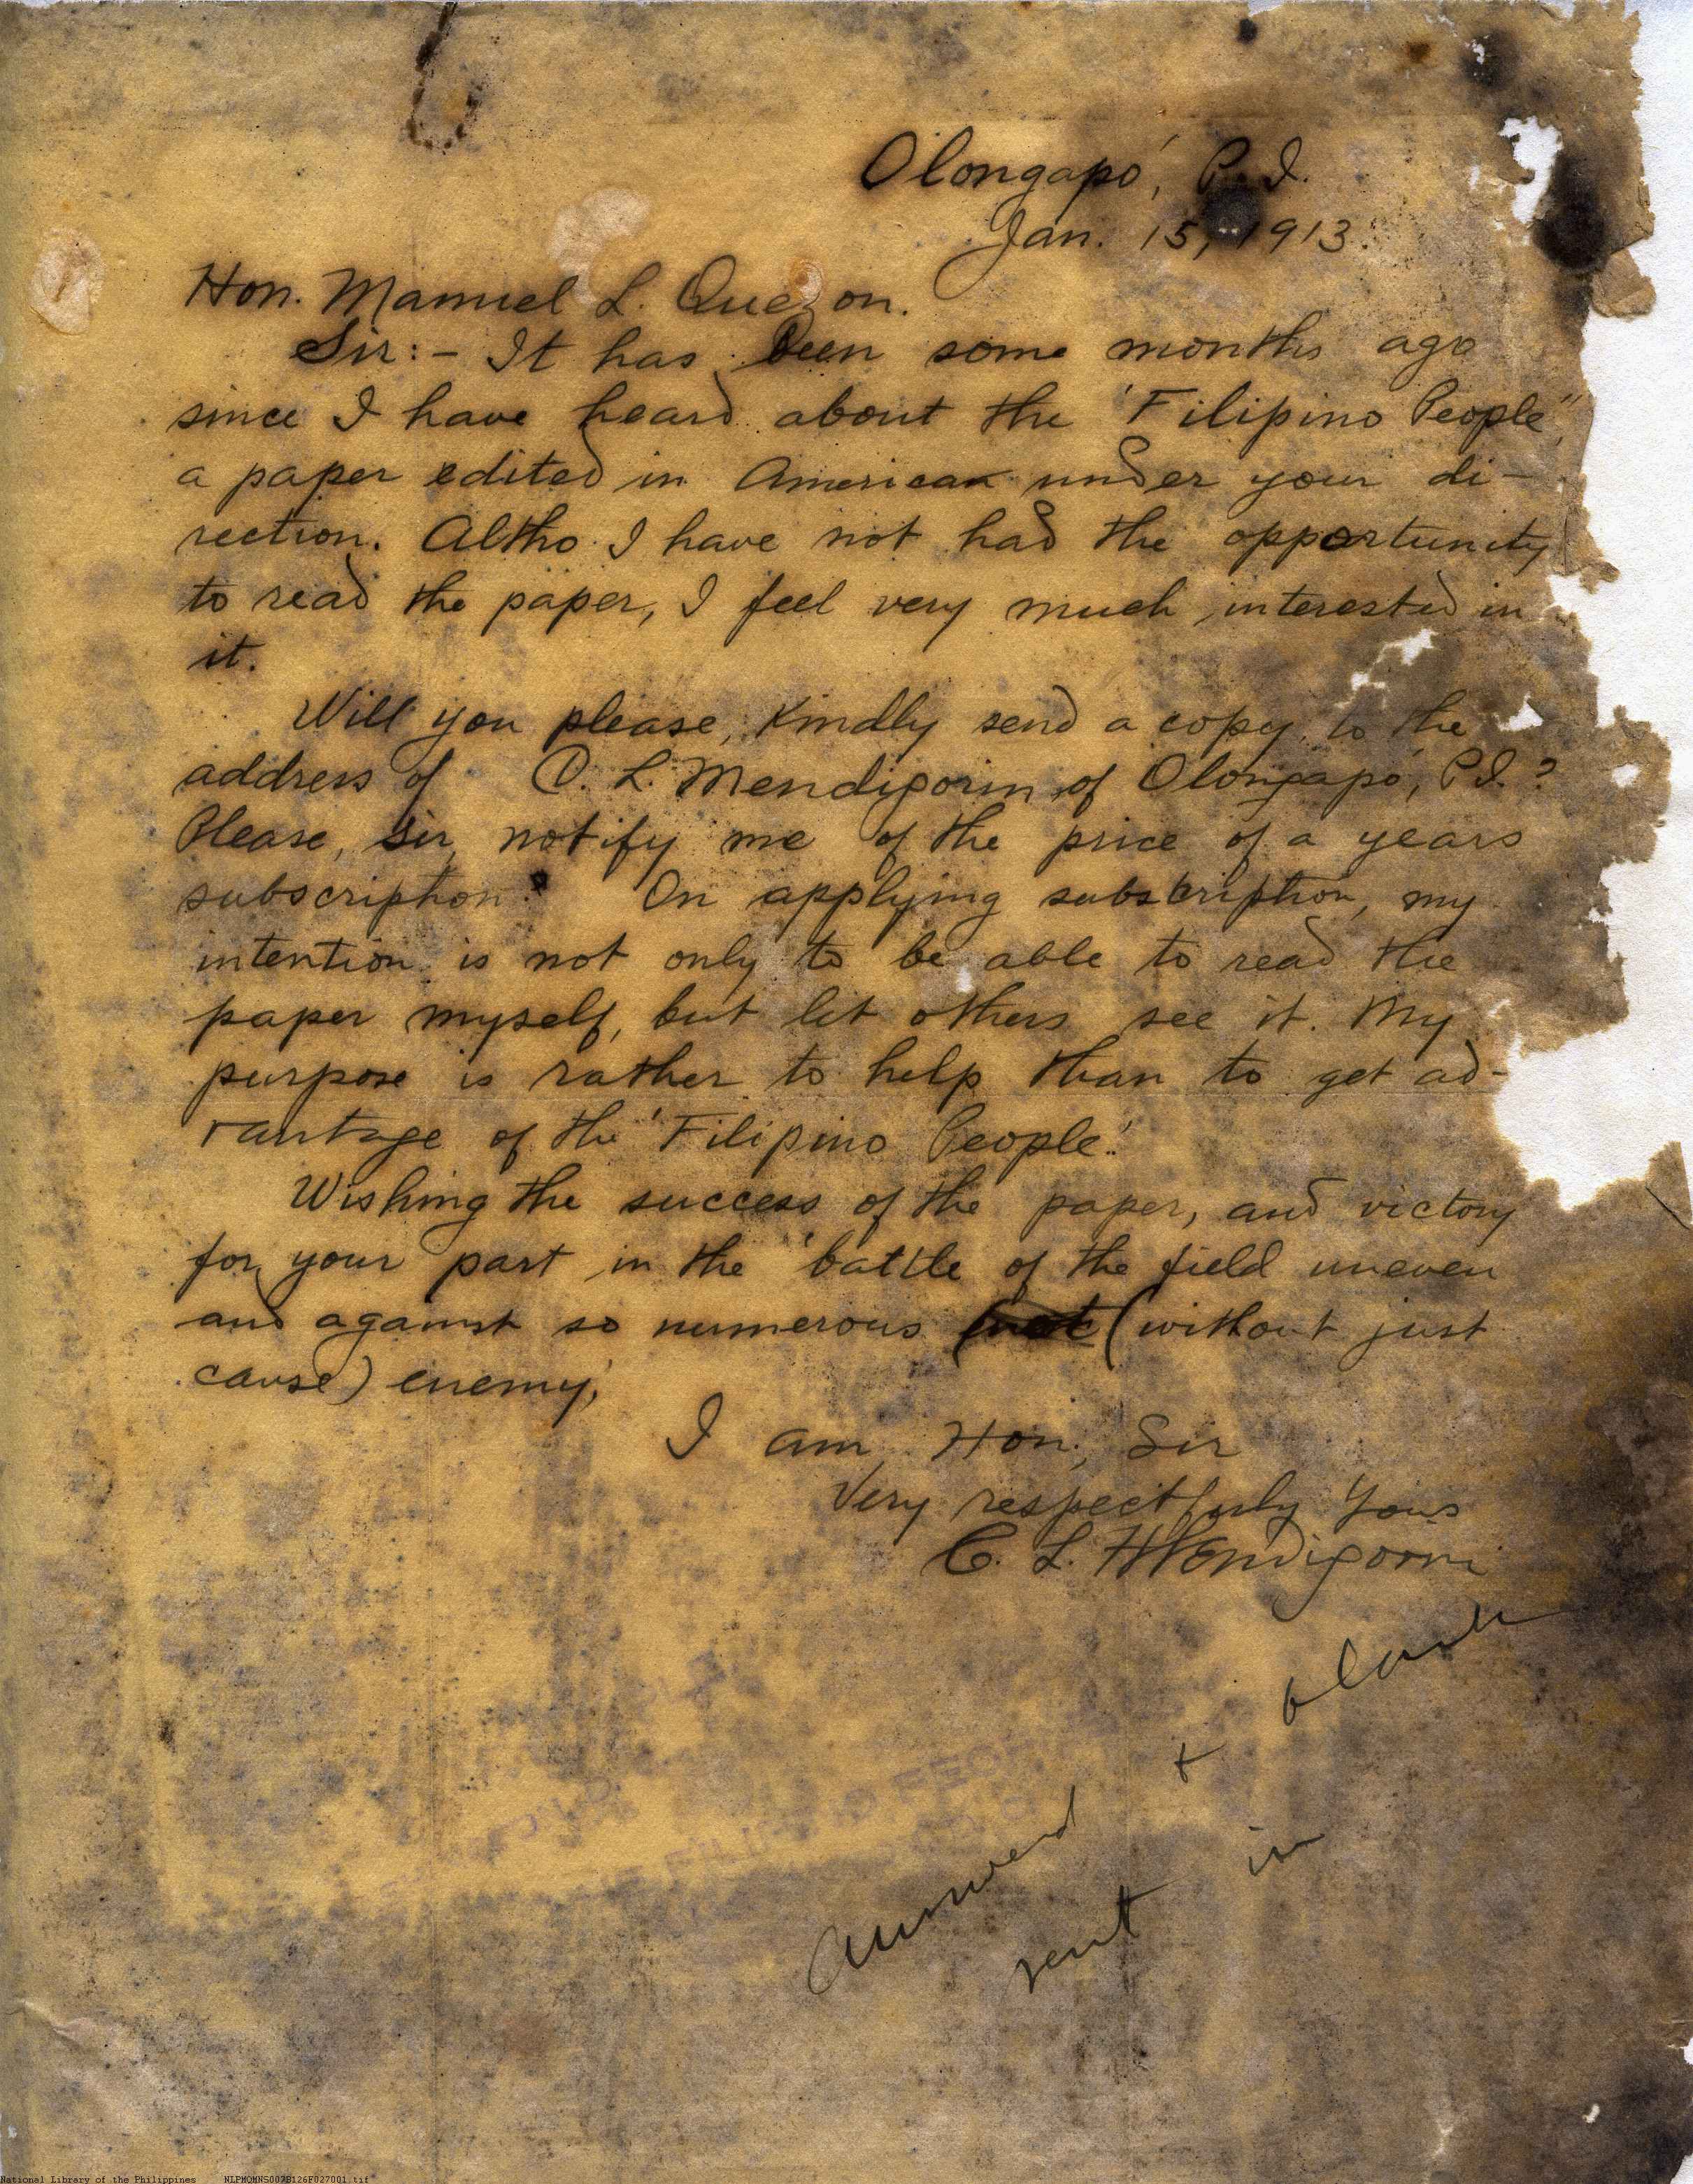 Olongapó, P.I.
Jan. 15, 1913.
Hon. Manuel L. Quezon.
Sir:- It has been some months ago
since I have heard about the "Filipino People",
a paper edited in American under your di-
rection. Altho I have not had the opportunity
to read the paper, I feel very much interested in
it.
Will you please, kindly send a copy to the
address of C. L. Mendigorin of Olongapó, P.I.?
Please, Sir, notify me of the price of a years
subscription? On applying subscription, my
intention is not only to be able to read the
paper myself, but let others see it. My
purpose is rather to help than to get ad-
vantage of the "Filipino People".
Wishing the success of the paper, and victory
for your part in the battle of the field uneven
and against so numerous (without just
cause) enemy,
I am, Hon. Sir
Very respectfuly Yours
C. L. Mendigorin
answered + blank
sent in
National Library of the Philippines NLPMQMNS007B126F027001.tif